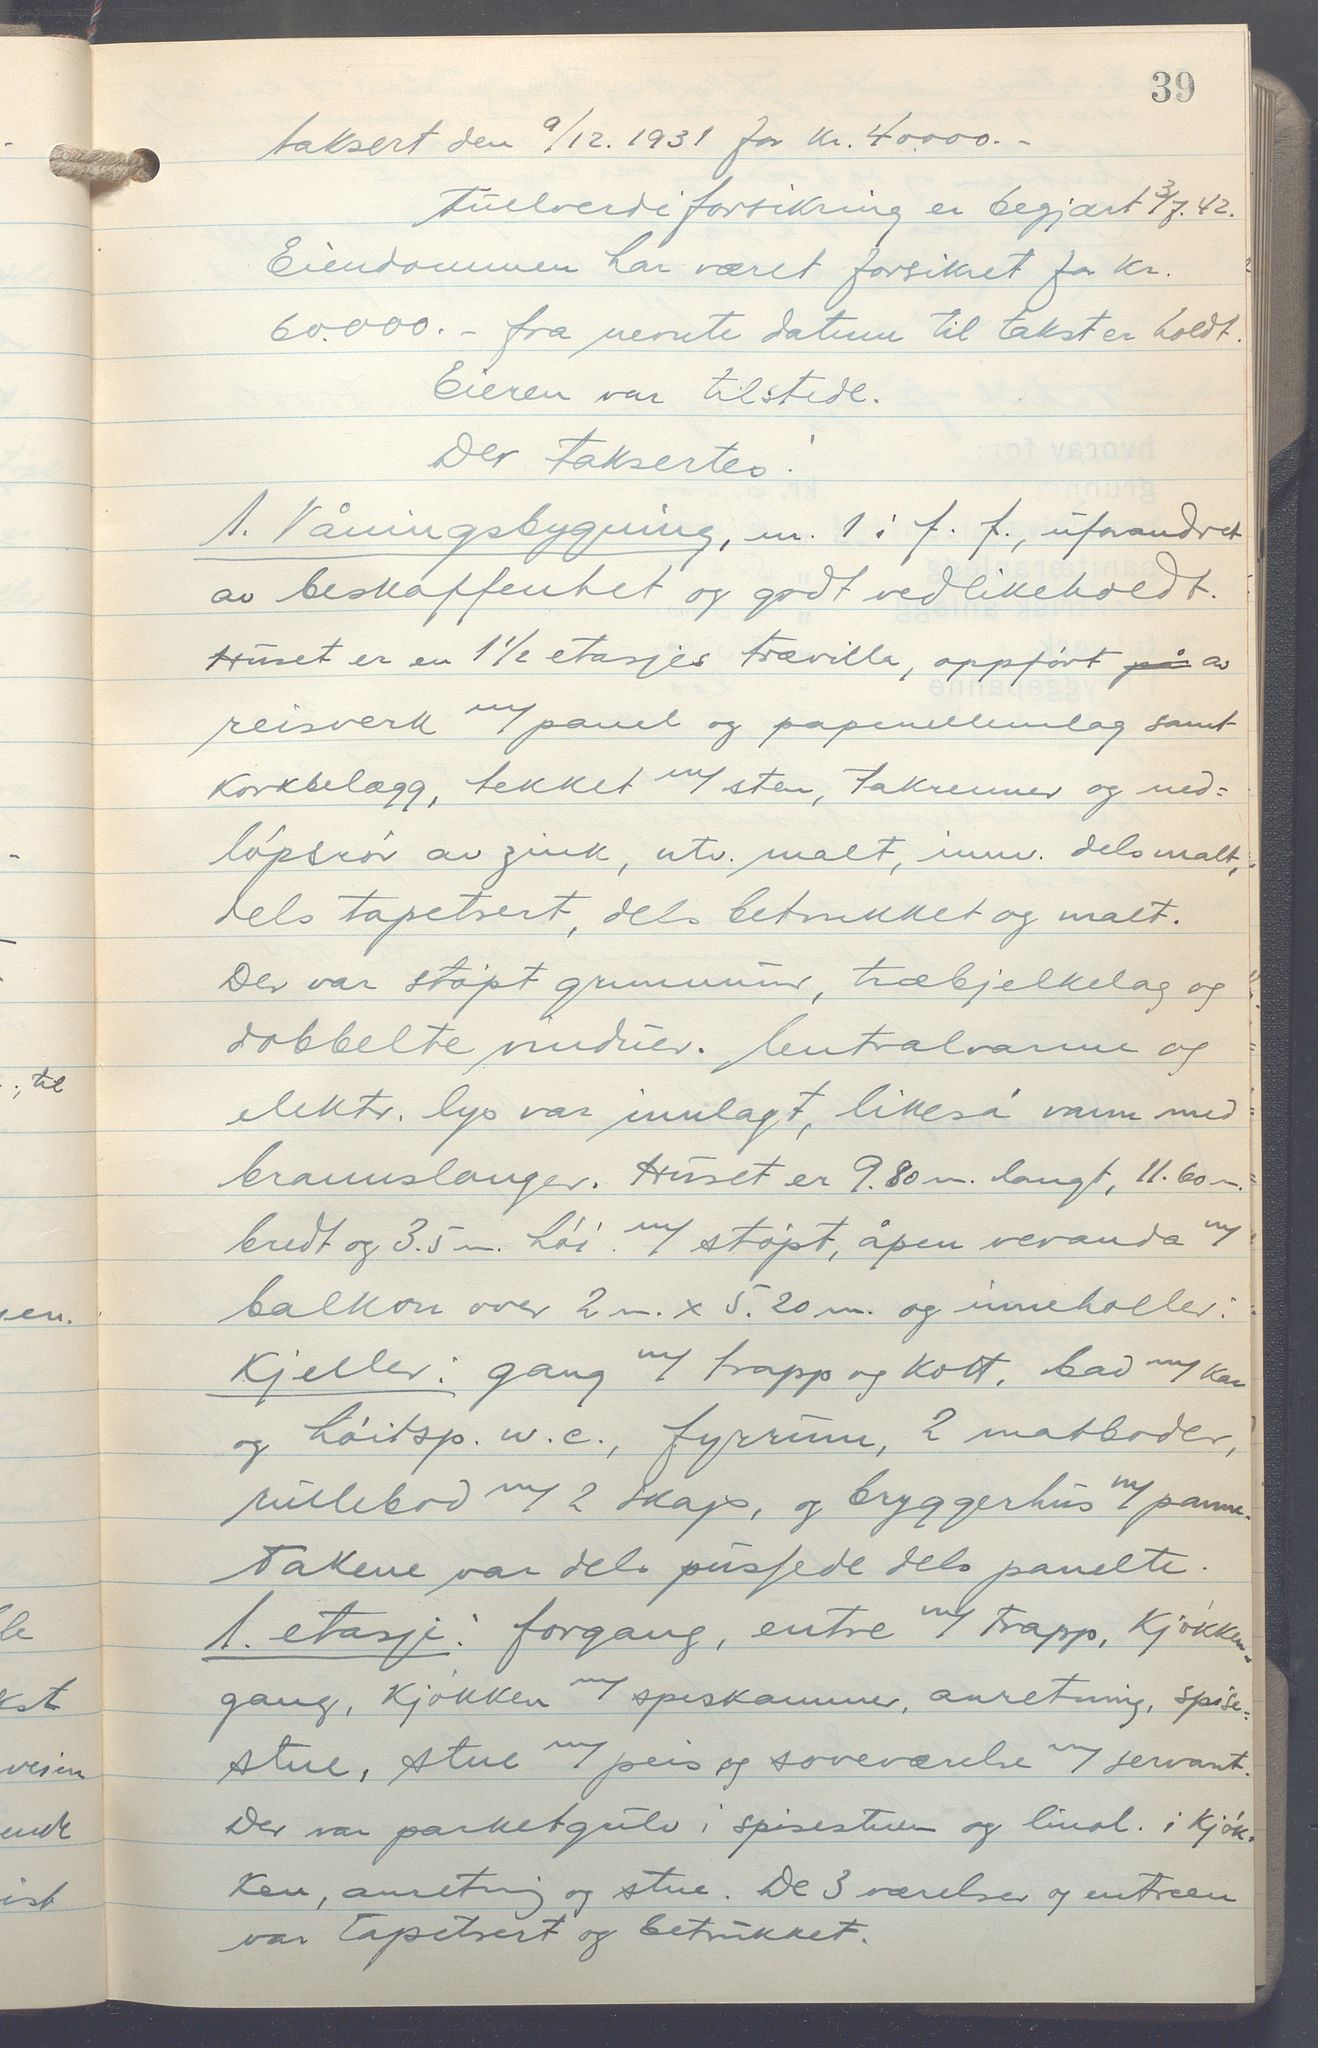 39
taksert den 9/12. 1931 for kr. 40000.-
Fullverdiforsikring er begjært 3/7. 42.
Eiendommen har været forsikret for kr.
60.000.- fra nevnte datum til takst er holdt.
Eieren var tilstede.
Der taksertes:
1. Våningsbygning, nr. 1 i f. f., uforandret
av beskaffenhet og godt vedlikeholdt.
Huset er en 1 1/2 etasjes trævilla, oppført på av
reisverk m/ panel og papmellemlag samt
korkbelægg, tekket m/ sten, takrenner og ned=
løpsrør av zink, utv. malt, innv. dels malt,
dels tapetsert, dels betrukket og malt.
Der var støpt grunnmur, træbjelkelag og
dobbelte vinduer. Centralvarme og
elektr. lys var innlagt, likeså vann med
brannslanger. Huset er 9.80 m. langt, 11.60 m.
bredt og 3.5 m. høi m/ støpt, åpen veranda m/
balkon over 2 m. x 5.20 m. og inneholler:
Kjeller: gang m/ trapp og kott, bad m/ kar
og høitsp. w.c., fyrrum, 2 matboder,
rullebod m/ 2 skap, og bryggerhus m/ panne.
Takene var dels pussede dels panelte.
1. etasje: forgang, entre m/ trapp, kjøkken=
gang, kjøkken m/ spiskammer, anretning, spise=
stue, stue m/ peis og soveværelse m/ servant.
Der var parketgulv i spisestuen og linol. i kjøk=
ken, anretning og stue. De 3 værelser og entreen
var tapetsert og betrukket.